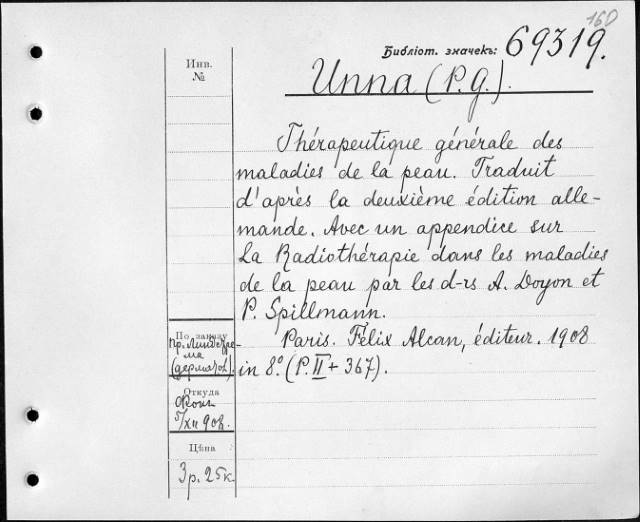 160
Библіот. значекъ: 69319.
Инв.
№
Unna (P.g.).
Thérapeutique générale des
maladies de la peau. Traduit
d'après la deuxième édition alle-
mande. Avec un appendice sur
la Radiothérapie dans les maladies
de la peau par les d-rs A. Doyon et
P. Spillmann.
Paris. Félix Alcan, éditeur. 1908
in 8.° (P. II + 367).
По заказу
пр.
Откуда
5/XII 908.
Цѣна
3 р. 25 к.